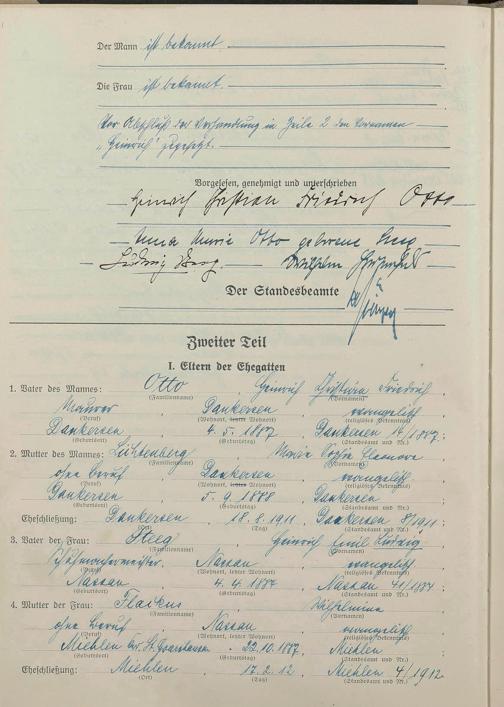 Der Mann ist bekannt.
Die Frau ist bekannt.
Vor Abschluß der Verhandlung in Zeile 2 den Vornamen
"Heinrich" zugesetzt.
Vorgelesen, genehmigt und unterschrieben
Heinrich Christian Friedrich Otto
Anna Marie Otto geborene Steeg
Ludwig Steeg. Wilhelm
Der Standesbeamte
Zweiter Teil
I. Eltern der Ehegatten
1. Vater des Mannes: Otto Heinrich Christian Friedrich
(Familienname) (Vornamen)
Maurer Dankersen evangelisch
(Beruf) (Wohnort, letzter Wohnort) (religiöses Bekenntnis)
Dankersen 4. 5. 1887 Dankersen 14/1887
(Geburtsort) (Geburtstag) (Standesamt und Nr.)
2. Mutter des Mannes: Lichtenberg Marie Sophie Eleonore
(Familienname) (Vornamen)
ohne Beruf Dankersen evangelisch
(Beruf) (Wohnort, letzter Wohnort) (religiöses Bekenntnis)
Dankersen 5. 9. 1888 Dankersen
(Geburtsort) (Geburtstag) (Standesamt und Nr.)
Eheschließung: Dankersen 1911 Dankersen 8/1911
(Ort) (Tag) (Standesamt und Nr.)
3. Vater der Frau: Steeg Heinrich Emil Ludwig
(Familienname) (Vornamen)
Nassau evangelisch
(Beruf) (Wohnort, letzter Wohnort) (religiöses Bekenntnis)
Nassau 4. 4. 1887 Nassau 41/1887
(Geburtsort) (Geburtstag) (Standesamt und Nr.)
4. Mutter der Frau: Wilhelmine
(Familienname) (Vornamen)
ohne Beruf Nassau evangelisch
(Beruf) (Wohnort, letzter Wohnort) (religiöses Bekenntnis)
Miehlen Kr. St. Goarshausen 22. 10. 1887. Miehlen
(Geburtsort) (Geburtstag) (Standesamt und Nr.)
Eheschließung: Miehlen 17. 2. 12 Miehlen 4/1912
(Ort) (Tag) (Standesamt und Nr.)